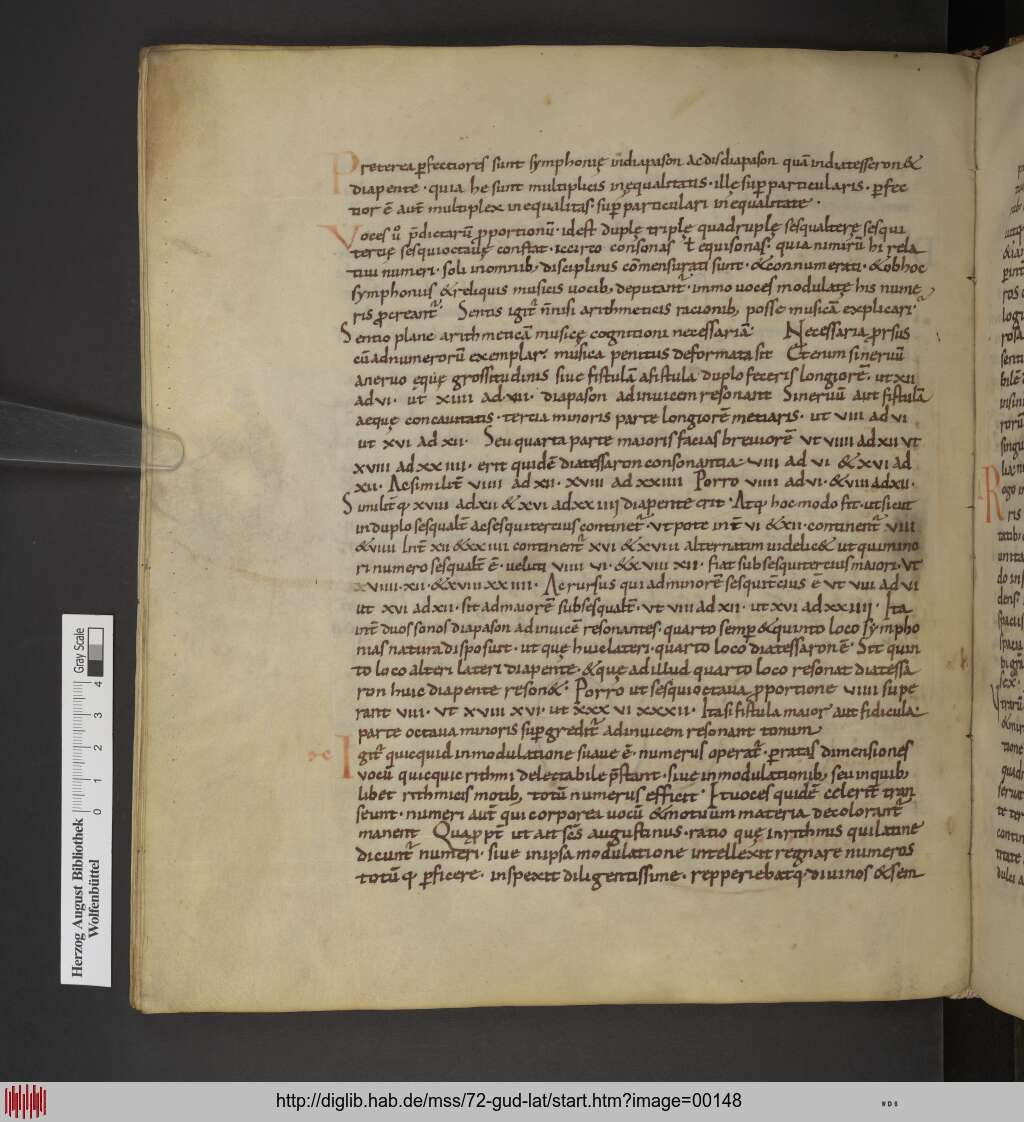 Preterea ꝑfectiores sunt symphonię in diapason ac disdiapason quā in diatesseron &
diapente · quia he sunt multiplicis inęqualitatis · illę suꝑ particularis · ꝑfec
tior ē aut̄ multiplex inequalitas · suꝑ particulari inęqualitate ·
Voces ū p̄dictarū ꝓportionū · id est duplę triplę quadruplę sesqualterę sesqui
tertię sesquioctauę constat · iccirto consonas ł equisonas · quia nimirū hi rela
tiui numeri · soli in omnib; disciplinis cōmensurati sunt · & connumerati · & ob hoc
symphoniis & reliquis musicis uocib; deputant̄ · immo uoces modulatę his nume
ris ꝓcreant̄ · Sentis igit̄ n̄ nisi arithmeticis racionib; posse musicā explicari ·
Sentio plane arithmeticā musicę cognitioni necessariā · Necessaria ꝓrsus
cū ad numerorū exemplar · musica penitus deformata sit Etenim si neruū
a neruo ęquę grossitudinis siue fistulā a fistula duplo feceris longiorē · ut xii
ad vi · ut xiiii ad vii · diapason ad inuicem resonant Si neruū aut fistulā
aeque concauitatis · tertia minoris parte longiorē metiaris · ut viii ad vi
ut xvi ad xii · Seu quarta parte maioris facias breuiorē ut viiii ad xii ut
xviii ad xxiiii · erit quidē diatessaron consonantia · viii ad vi & xvi ad
xii · Ac similit̄ viiii ad xii · xviii ad xxiiii Porro viiii ad vi · & viii ad xii ·
Similit̄ ꝙ xviii ad xii & xvi ad xxiiii diapente erit · Atꝙ hoc modo fit · ut sicut
in duplo sesqualt̄ ac sesquitercius continet̄ · ut pote int̄ vi & xii · continent̄ viii
& viiii Int̄ xii & xxiiii continent̄ xvi & xviii alternatim uidelic& ut qui mino
ri numero sesqualt̄ ē · ueluti viiii vi · & xviii xii · fiat subsesquitercius maiori · ut
xviiii · xii · & xviii xxiiii · Ac rursus qui ad minorē sesquit̄cius ē ut viii ad vi
ut xvi ad xii · sit ad maiorē subsesqualt̄ · ut viii ad xii · ut xvi ad xxiiii · Ita
int̄ duos sonos diapason ad inuicē resonantes · quarto semꝑ & quinto loco sympho
nias natura disposuit · ut que huic lateri · quarto loco diatessaron ē · Sit quin
to loco alteri lateri diapente · & que ad illud quarto loco resonat diatessa
ron huic diapente reson& · Porro ut sesquioctaua ꝓportione viiii supe
rant viii · ut xviii xvi · ut xxxvi xxxii · Ita si fistula maior aut fidicula ·
parte octaua minoris suꝑgredit̄ ad inuicem resonant tonum
Igit̄ quicquid in modulatione suaue ē · numerus operat̄ · ꝑ ratas dimensiones
vocū quicquic rithmi delectabile p̄stant · siue in modulationib; seu in quib;
libet rithmicis motib; totū numerus efficit · Et uoces quidē celerit̄ tran
seunt · numeri aut̄ qui corporea uocū & motuum materia decolorant̄
manent Quaꝓpt̄ ut ait sc̄s augustinus · ratio quę in rithmis qui latine
dicunt̄ numeri · siue in ipsa modulatione intellexit regnare numeros
totū ꝙ ꝑficere · inspexit diligentissime · repperiebatq; diuinos & sem
Herzog August Bibliothek
Wolfenbüttel
0 1 2 3 4
Gray Scale
http://diglib.hab.de/mss/72-gud-lat/start.htm?image=00148